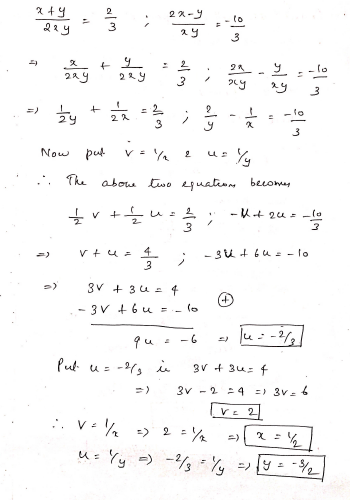 (x+y)/(2xy) = 2/3 ; (2x-y)/(xy) = -10/3
=> x/(2xy) + y/(2xy) = 2/3 ; 2x/(xy) - y/(xy) = -10/3
=> 1/(2y) + 1/(2x) = 2/3 ; 2/y - 1/x = -10/3
Now put v = 1/x & u = 1/y
∴ The above two equation becomes
1/2 v + 1/2 u = 2/3 ; -v + 2u = -10/3
=> v + u = 4/3 ; -3v + 6u = -10
=> 3v + 3u = 4
-3v + 6u = -10 ⊕
9u = -6 => u = -2/3
Put u = -2/3 in 3v + 3u = 4
=> 3v - 2 = 4 => 3v = 6
v = 2
∴ v = 1/x => 2 = 1/x => x = 1/2
u = 1/y => -2/3 = 1/y => y = -3/2